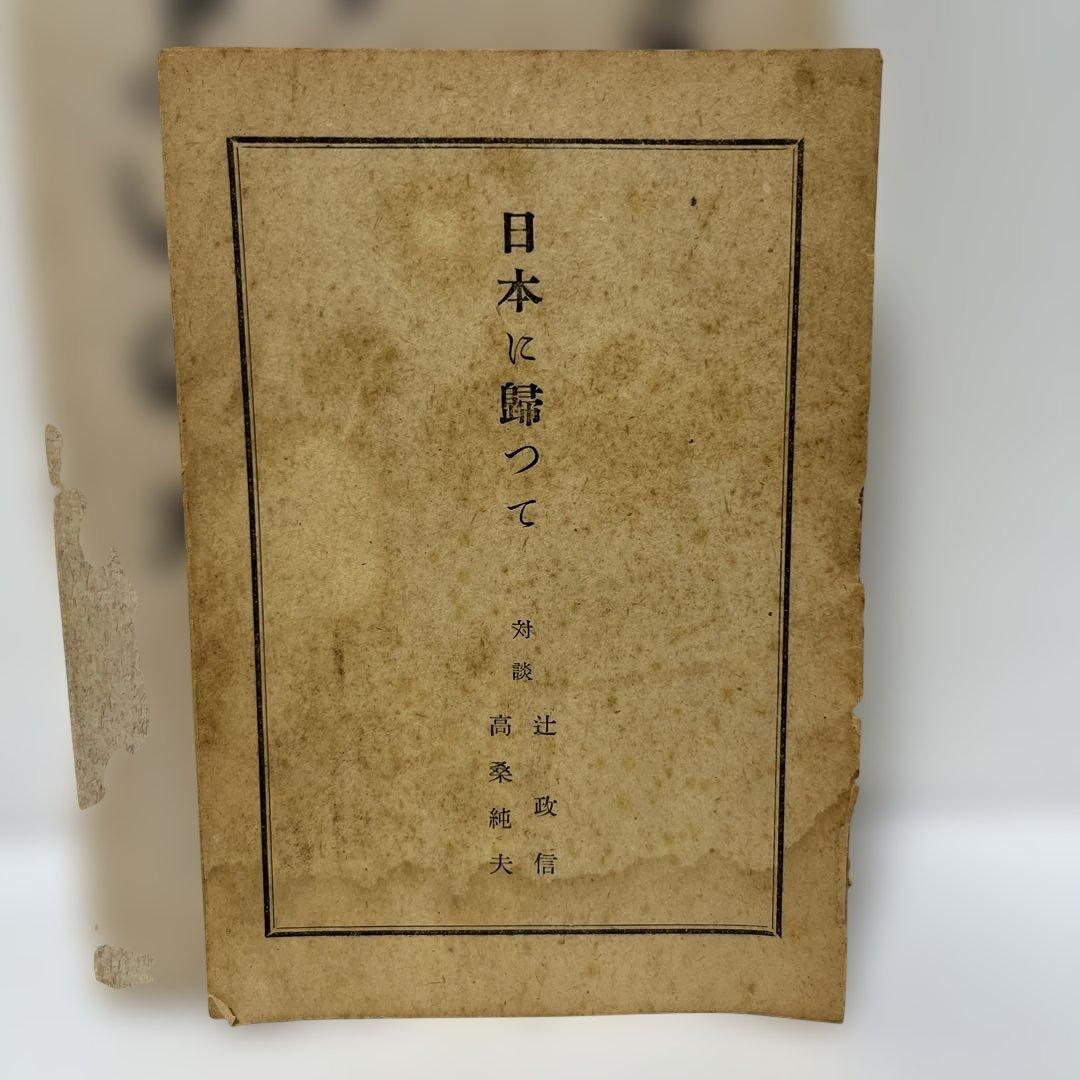 日本に歸つて
対談
辻政信
高桑純夫